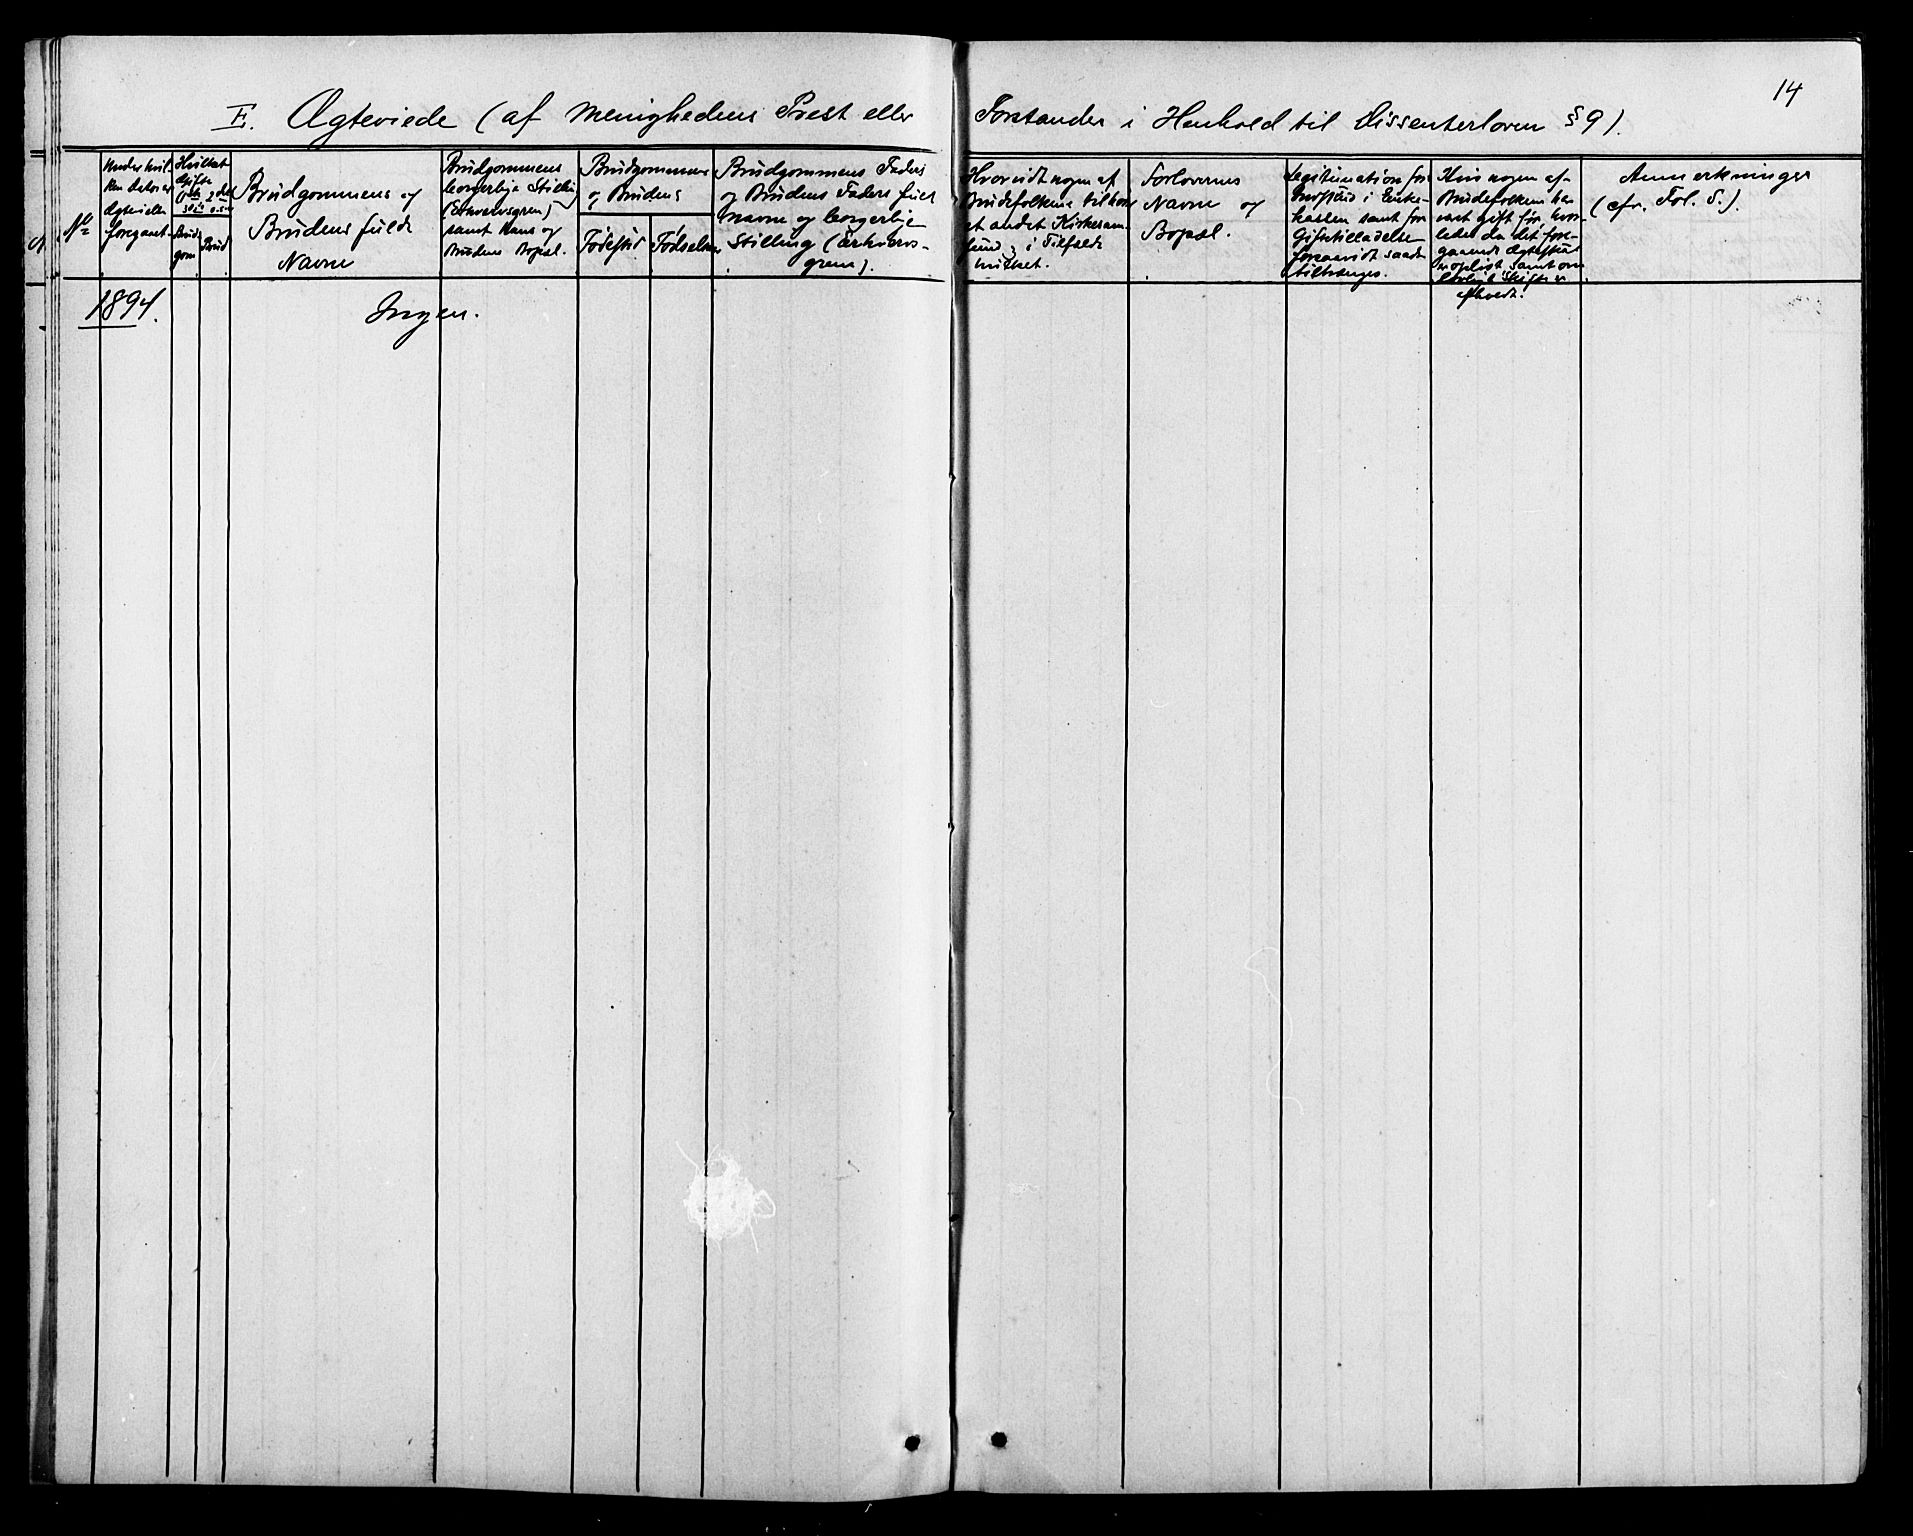 14
E. Ægteviede (af Menighedens Prest eller Forstander i Henhold til Dissenterloven § 9).
No
foregaaet.
Hvilket
Brud
gom
Brud
Brudgommens og
Brudens fulde
Navne
Brudgommens
borgerlige Stilling
(Erhvervsgren)
samt Hans og
Brudens Bopæl.
Brudgommens
og Brudens
Fødested
Fødselsaar
Brudgommens Faders
og Brudens Faders fulde
Navne og borgerlige
Stilling (Erhvervs-
gren).
Hvorvidt nogen af
Brudefolkene tilhører
et andet Kirkesam-
fund, i Tilfælde
hvilket.
Forlovernes
Navne og
Bopæl.
Legitimation for
Indskud i Enke-
kassen samt for
Giftetilladelse
forsaavidt saadan
tiltrænges.
Hvis nogen af
Brudefolkene har
været gift før, hvor-
ledes da det fore-
gaaende Ægteskab
er opløst samt om
lovligt Skifte er
afholdt.
Anmerkninger
(cfr. Fol. S.).
1894.
Ingen.